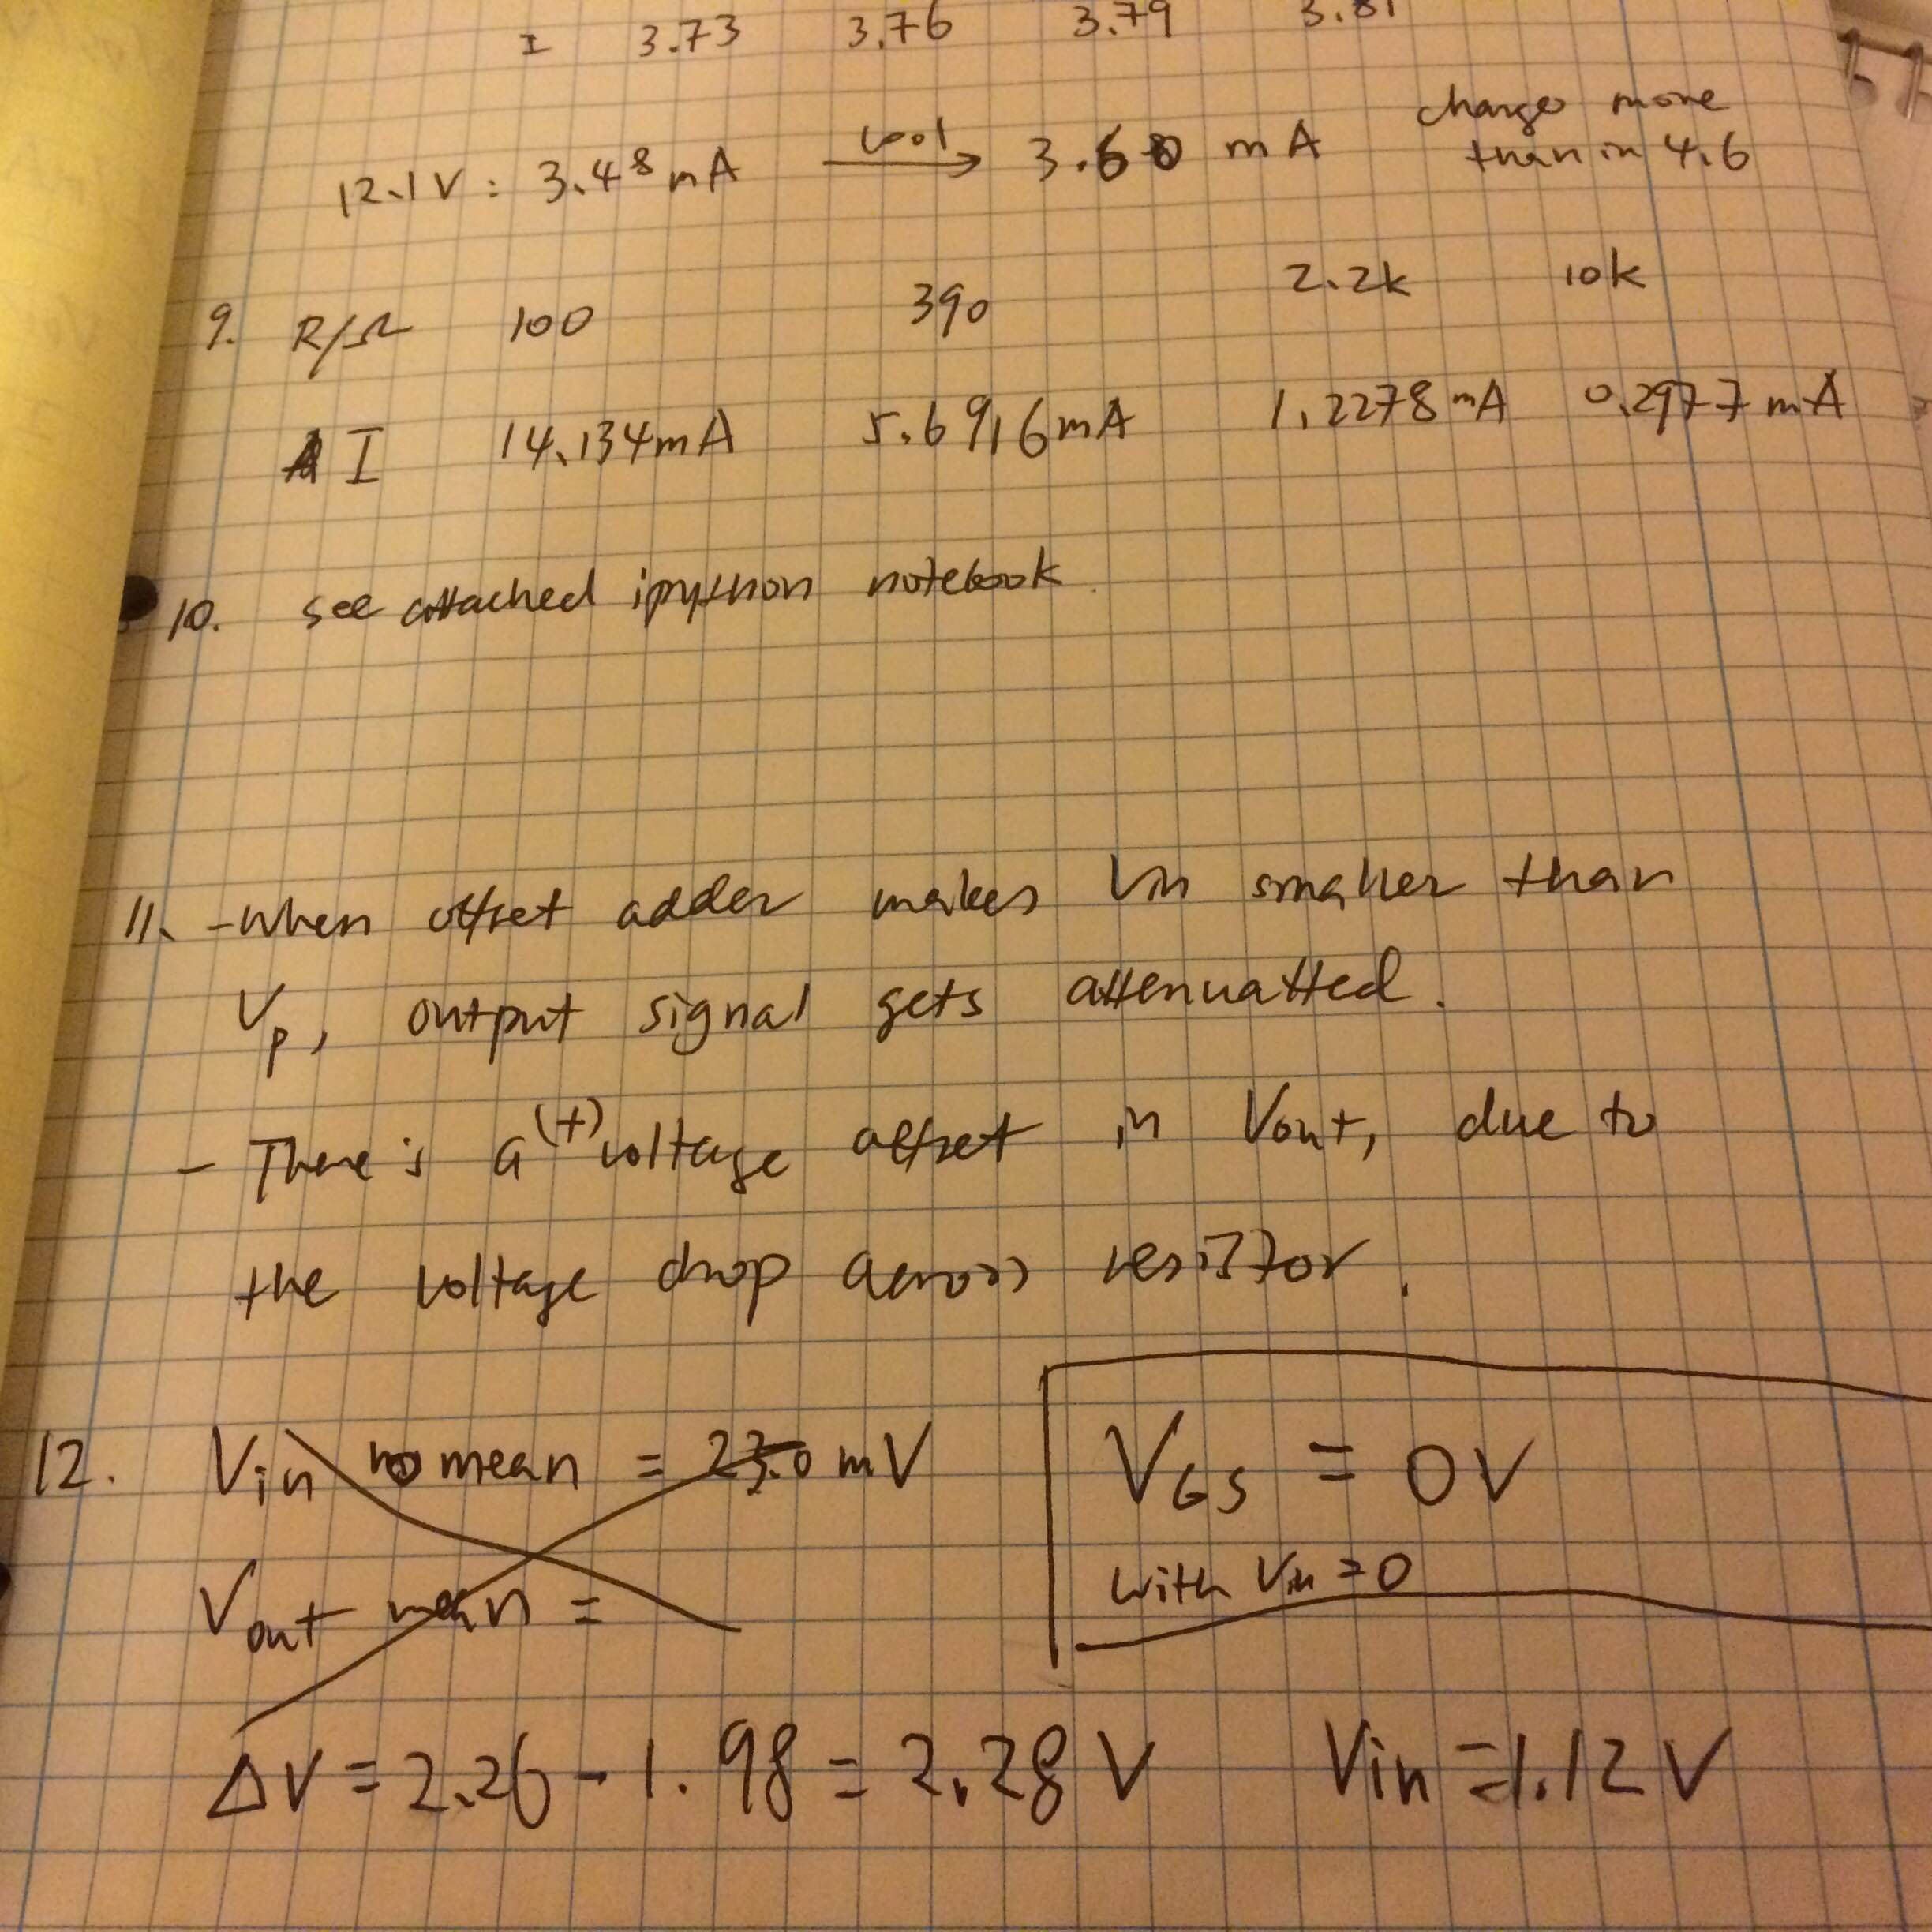 I 3.73 3.76 3.79 3.81
12.1V : 3.48 mA cool → 3.60 mA change more than in 4.6
9. R/Ω 100 390 2.2k 10k
I 14.134mA 5.6916mA 1.2278mA 0.2977mA
10. see attached ipython notebook.
11. - When offset adder makes Vin smaller than
Vp, output signal gets attenuatted.
- There is a (+) voltage offset in Vout, due to
the voltage drop across resistor.
12. Vin mean = 23.0 mV
Vout mean =
VGS = 0V
with Vin = 0
ΔV = 2.26 - 1.98 = 2.28 V Vin = 1.12 V